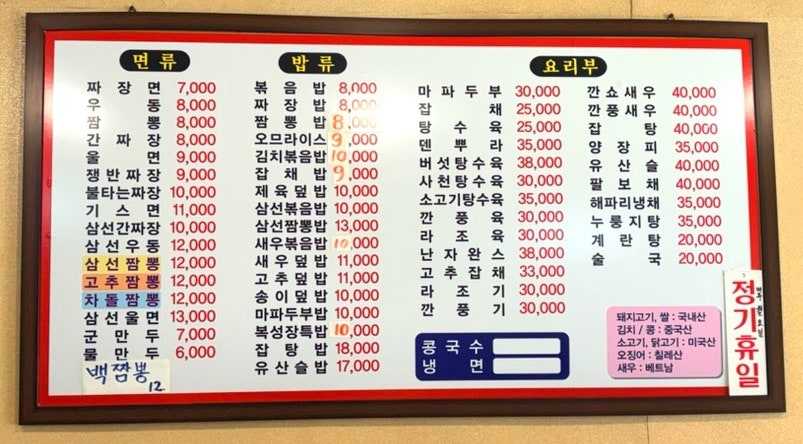 면류
짜장면 7,000
우동 8,000
짬뽕 8,000
간짜장 8,000
울면 9,000
쟁반짜장 9,000
불타는짜장 10,000
기스면 11,000
삼선간짜장 10,000
삼선우동 12,000
삼선짬뽕 12,000
고추짬뽕 12,000
차돌짬뽕 12,000
삼선울면 13,000
군만두 7,000
물만두 6,000
백짬뽕 12.
밥류
볶음밥 8,000
짜장밥 8,000
짬뽕밥 8,000
오므라이스 9,000
김치볶음밥 10,000
잡채밥 9,000
제육덮밥 10,000
삼선볶음밥 10,000
삼선짬뽕밥 13,000
새우볶음밥 10,000
새우덮밥 11,000
고추덮밥 11,000
송이덮밥 10,000
마파두부밥 10,000
복성장특밥 10,000
잡탕밥 18,000
유산슬밥 17,000
요리부
마파두부 30,000
잡채 25,000
탕수육 25,000
덴뿌라 35,000
버섯탕수육 38,000
사천탕수육 30,000
소고기탕수육 35,000
깐풍육 30,000
라조육 30,000
난자완스 38,000
고추잡채 33,000
라조기 30,000
깐풍기 30,000
깐쇼새우 40,000
깐풍새우 40,000
잡탕 40,000
양장피 35,000
유산슬 40,000
팔보채 40,000
해파리냉채 35,000
누룽지탕 35,000
계란탕 20,000
술국 20,000
콩국수
냉면
돼지고기, 쌀 : 국내산
김치 / 콩 : 중국산
소고기, 닭고기 : 미국산
오징어 : 칠레산
새우 : 베트남
정기휴일
매주 월요일